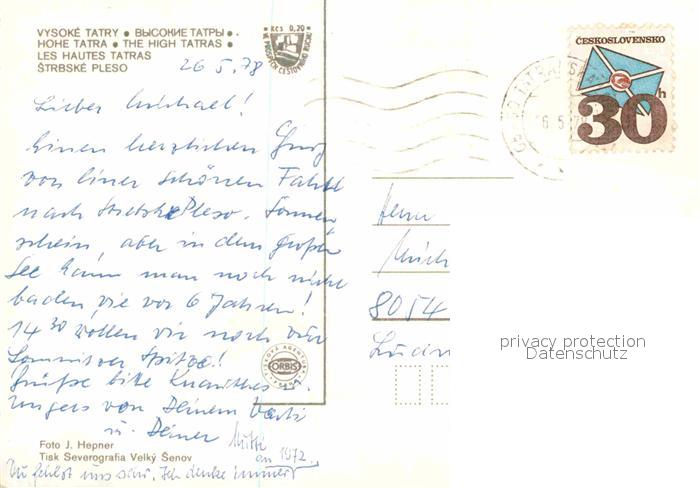 VYSOKÉ TATRY • ВЫСОКИЕ ТАТРЫ •
HOHE TATRA • THE HIGH TATRAS •
LES HAUTES TATRAS
ŠTRBSKÉ PLESO
26 5. 78
Kčs 0,20
ČESKOSLOVENSKO
30h
Lieber Michael!
Einen herzlichen Gruß
von einer schönen Fahrt
nach Strbske Pleso. Sonnen
schein, aber in dem großen
See kann man noch nicht
baden, wie vor 6 Jahren!
14 30 wollen wir noch zur
Lomnitzer Spitze!
Grüße bitte
Ungers von Deinem Vati
u. Deiner Mutti
an 1972
Du fehlst uns sehr. Ich denke immer
Herrn
Mich
8054
ORBIS
Foto J. Hepner
Tisk Severografia Velký Šenov
privacy protection
Datenschutz